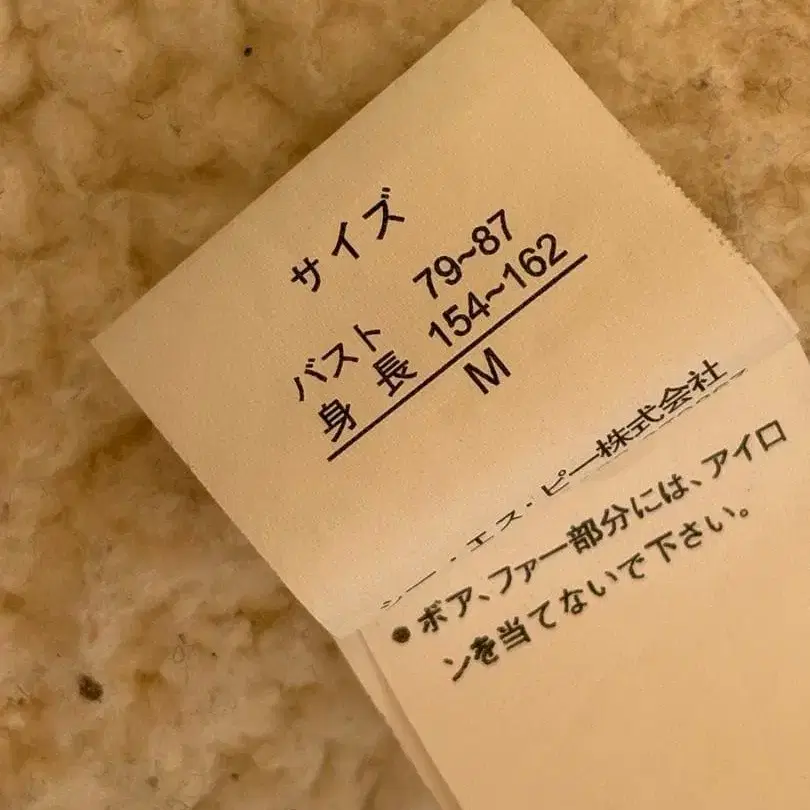 サイズ
バスト 79~87
身長 154~162
M
シー・エス・ピー株式会社
●ボア、ファー部分には、アイロ
ンを当てないで下さい。